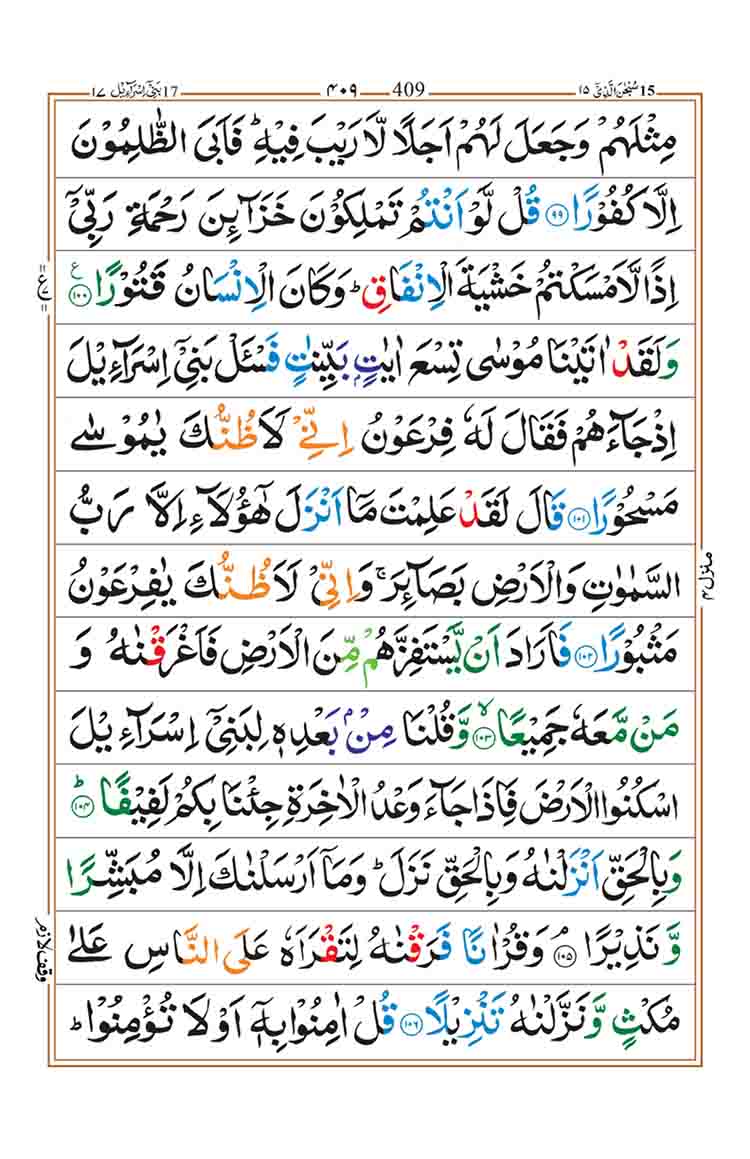 15 سُبْحٰنَ الَّذِیْۤ ۱۵
409 ۴۰۹
17 بَنِیْۤ اِسْرَآءِیْلَ ۱۷
مِثْلَهُمْ وَجَعَلَ لَهُمْ اَجَلًا لَّا رَیْبَ فِیْهِ ؕ فَاَبَی الظّٰلِمُوْنَ
اِلَّا كُفُوْرًا ۝۹۹ قُلْ لَّوْ اَنْتُمْ تَمْلِكُوْنَ خَزَآىِٕنَ رَحْمَةِ رَبِّیْۤ
اِذًا لَّاَمْسَكْتُمْ خَشْیَةَ الْاِنْفَاقِ ؕ وَكَانَ الْاِنْسَانُ قَتُوْرًا ۝۱۰۰ ع
وَلَقَدْ اٰتَیْنَا مُوْسٰی تِسْعَ اٰیٰتٍۭ بَیِّنٰتٍ فَسْـَٔلْ بَنِیْۤ اِسْرَآءِیْلَ
اِذْ جَآءَهُمْ فَقَالَ لَهٗ فِرْعَوْنُ اِنِّیْ لَاَظُنُّكَ یٰمُوْسٰی
مَسْحُوْرًا ۝۱۰۱ قَالَ لَقَدْ عَلِمْتَ مَاۤ اَنْزَلَ هٰۤؤُلَآءِ اِلَّا رَبُّ
السَّمٰوٰتِ وَالْاَرْضِ بَصَآىِٕرَ ۚ وَاِنِّیْ لَاَظُنُّكَ یٰفِرْعَوْنُ
مَثْبُوْرًا ۝۱۰۲ فَاَرَادَ اَنْ یَّسْتَفِزَّهُمْ مِّنَ الْاَرْضِ فَاَغْرَقْنٰهُ وَ
مَنْ مَّعَهٗ جَمِیْعًا ۙ۝۱۰۳ وَّقُلْنَا مِنْۢ بَعْدِهٖ لِبَنِیْۤ اِسْرَآءِیْلَ
اسْكُنُوا الْاَرْضَ فَاِذَا جَآءَ وَعْدُ الْاٰخِرَةِ جِئْنَا بِكُمْ لَفِیْفًا ؕ۝۱۰۴
وَبِالْحَقِّ اَنْزَلْنٰهُ وَبِالْحَقِّ نَزَلَ ؕ وَمَاۤ اَرْسَلْنٰكَ اِلَّا مُبَشِّرًا
وَّنَذِیْرًا ۘ۝۱۰۵ وَقُرْاٰنًا فَرَقْنٰهُ لِتَقْرَاَهٗ عَلَی النَّاسِ عَلٰی
مُكْثٍ وَّنَزَّلْنٰهُ تَنْزِیْلًا ۝۱۰۶ قُلْ اٰمِنُوْا بِهٖۤ اَوْ لَا تُؤْمِنُوْا ؕ
منزل ۴
وقف لازم